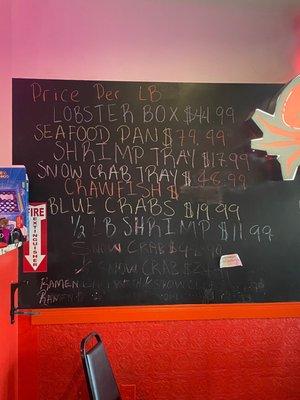 Price Per LB
LOBSTER BOX $41.99
SEAFOOD PAN $79.99
SHRIMP TRAY $17.99
SNOW CRAB TRAY $48.99
CRAWFISH $
BLUE CRABS $19.99
½ LB SHRIMP $11.99
SNOW CRAB
SNOW CRAB $
RAMEN
RAMEN
FIRE
EXTINGUISHER